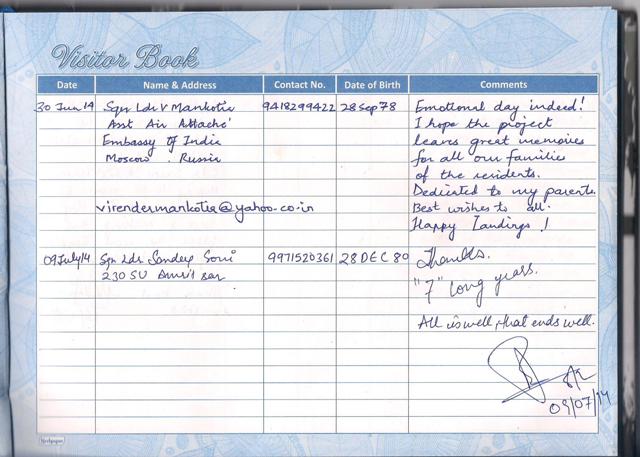 Visitor Book
Date Name & Address Contact No. Date of Birth Comments
30 Jun 14 Sqn Ldr V Mankotia 9418299422 28 Sep 78 Emotional day indeed!
Asst Air Attache' I hope the project
Embassy of India leaves great memories
Moscow. Russia for all our families
of the residents.
Dedicated to my parents.
virendermankotia@yahoo.co.in Best wishes to all.
Happy Landings!
09 July 14 Sqn Ldr Sandeep Soni 9971520361 28 DEC 80 Thanks.
230 SU Amritsar
"7" long years.
All is well, that ends well.
09/07/14
Neelgagan